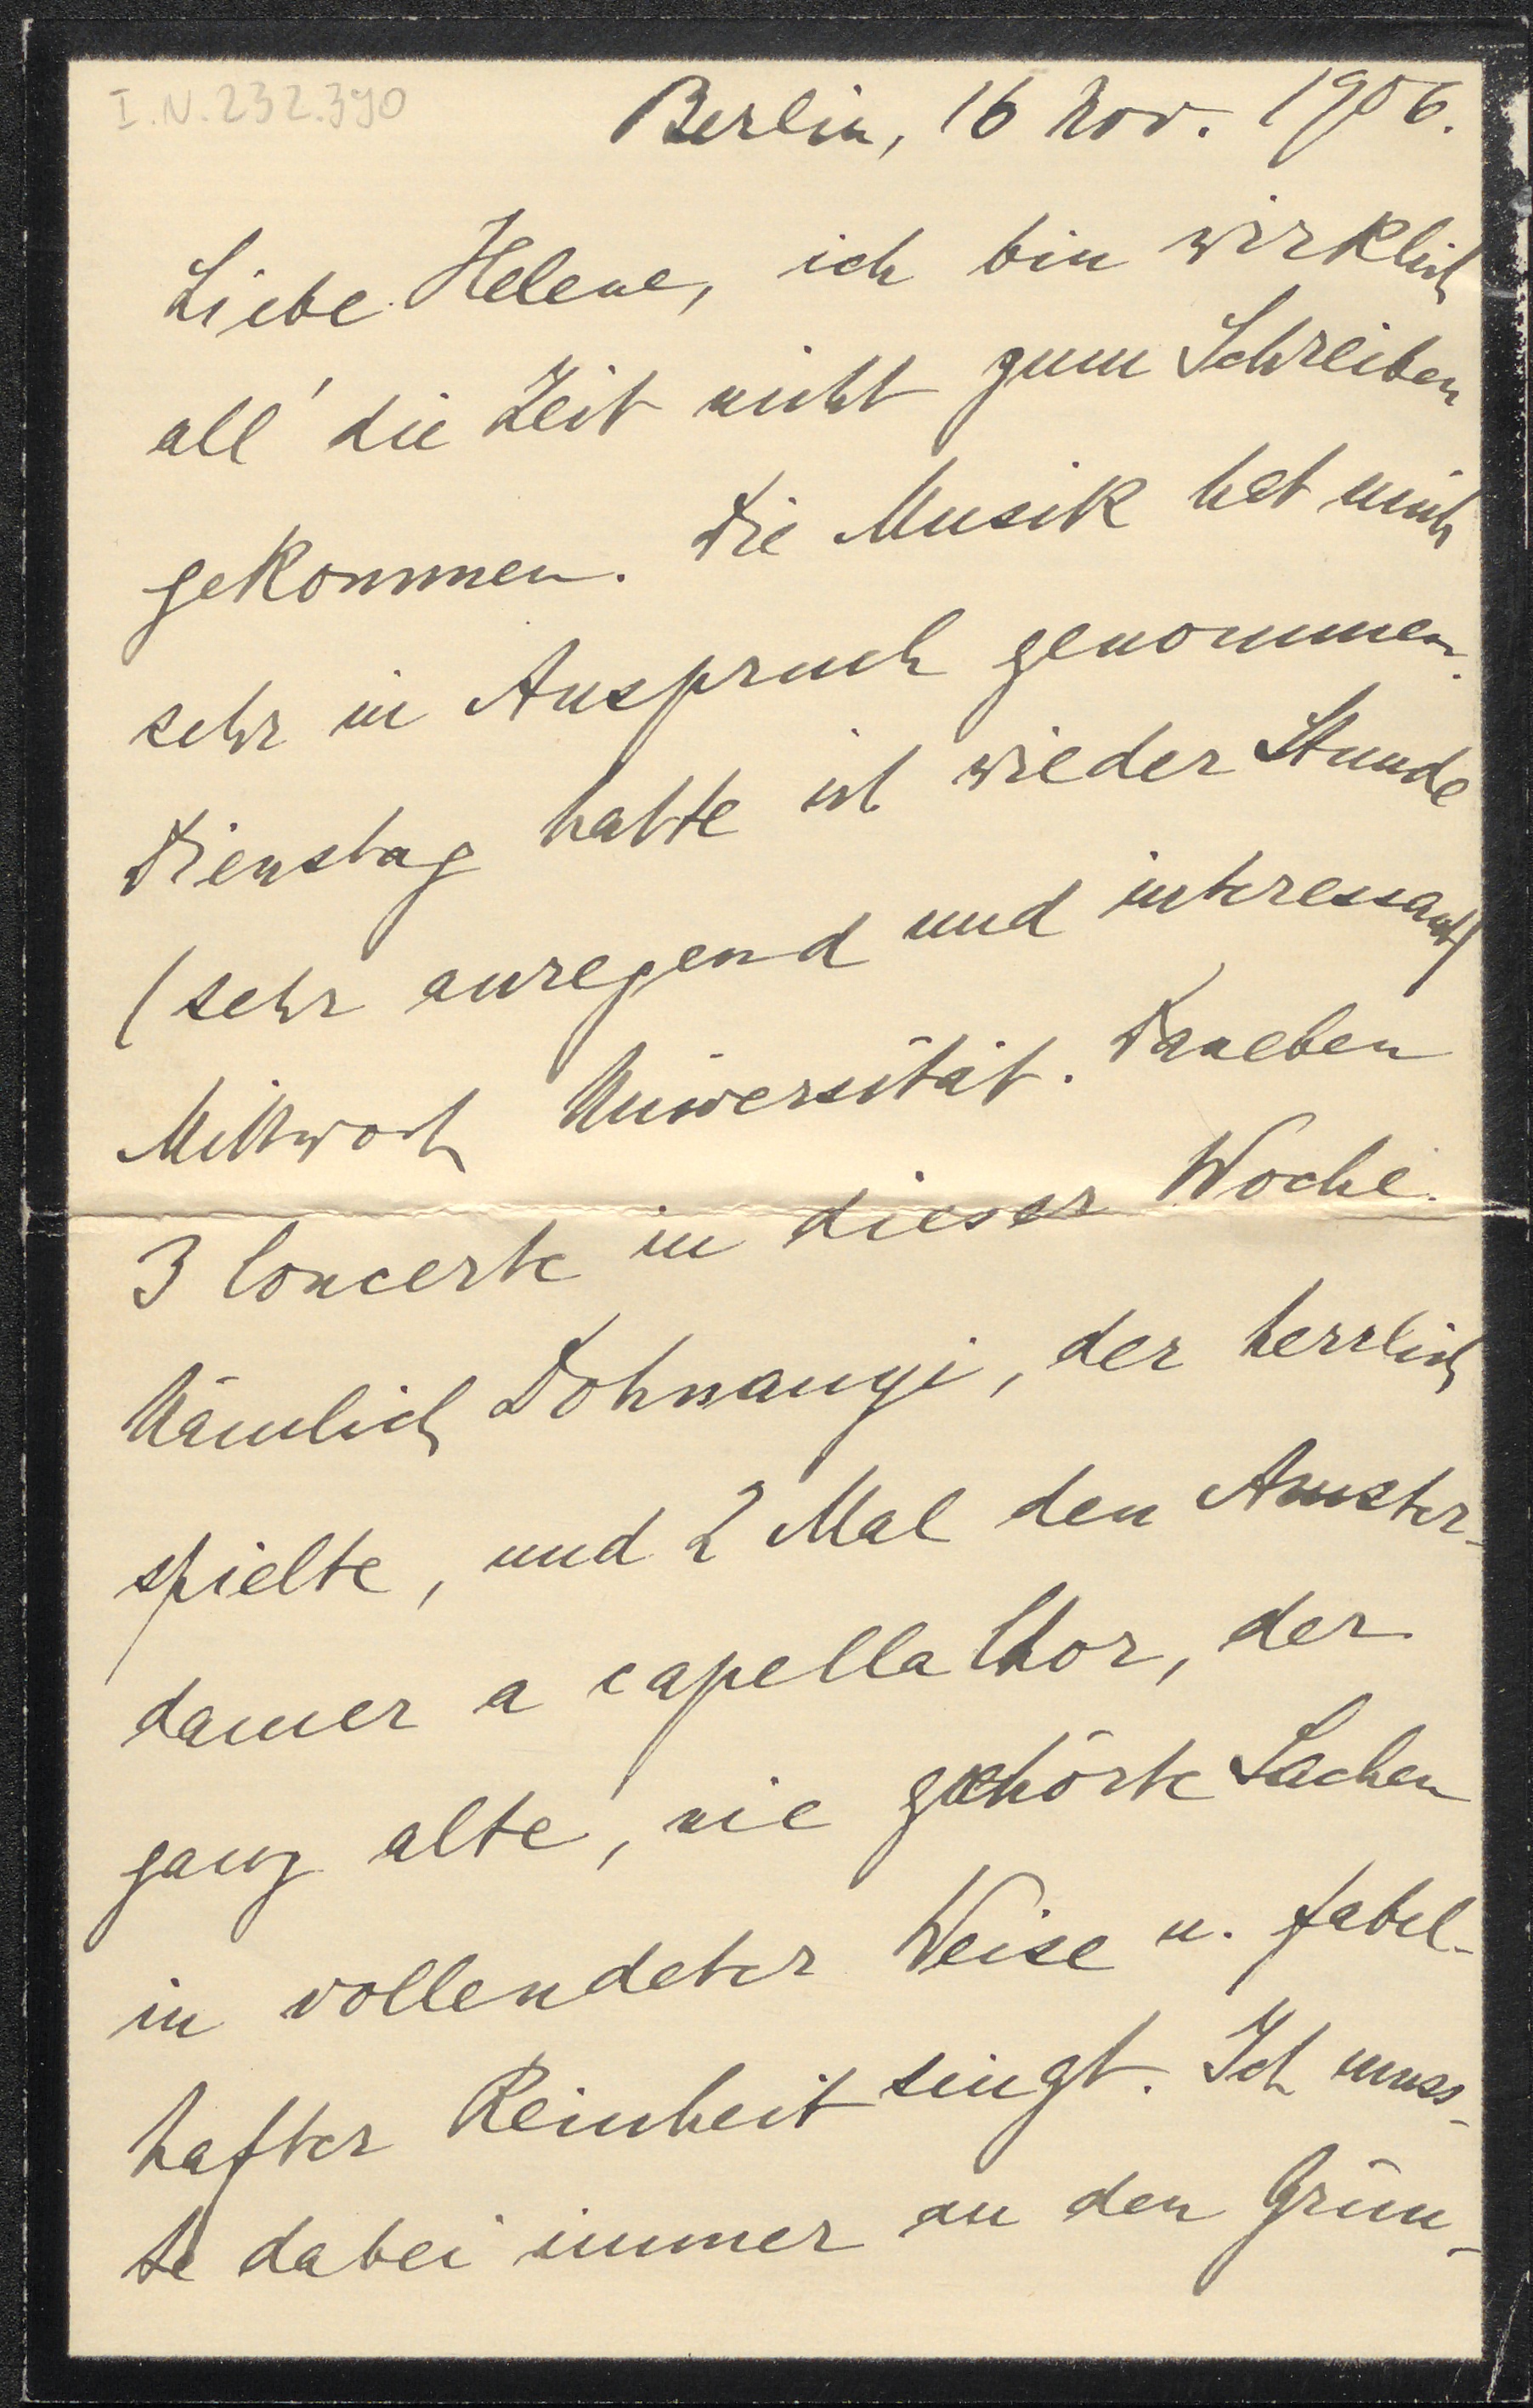 I.N.232.390
Berlin, 16 Nov. 1906.
Liebe Helene, ich bin wirklich
all' die Zeit nicht zum Schreiben
gekommen. Die Musik hat mich
sehr in Anspruch genommen.
Dienstag hatte ich wieder Stunde
(sehr anregend und interessant)
Mittwoch Universität. Daneben
3 Concerte in dieser Woche.
Nämlich Dohnanyi, der herrlich
spielte, und 2 Mal den Amster-
damer a capella Chor, der
ganz alte, nie gehörte Sachen
in vollendeter Weise u. fabel-
hafter Reinheit singt. Ich muss-
te dabei immer an den Grün-